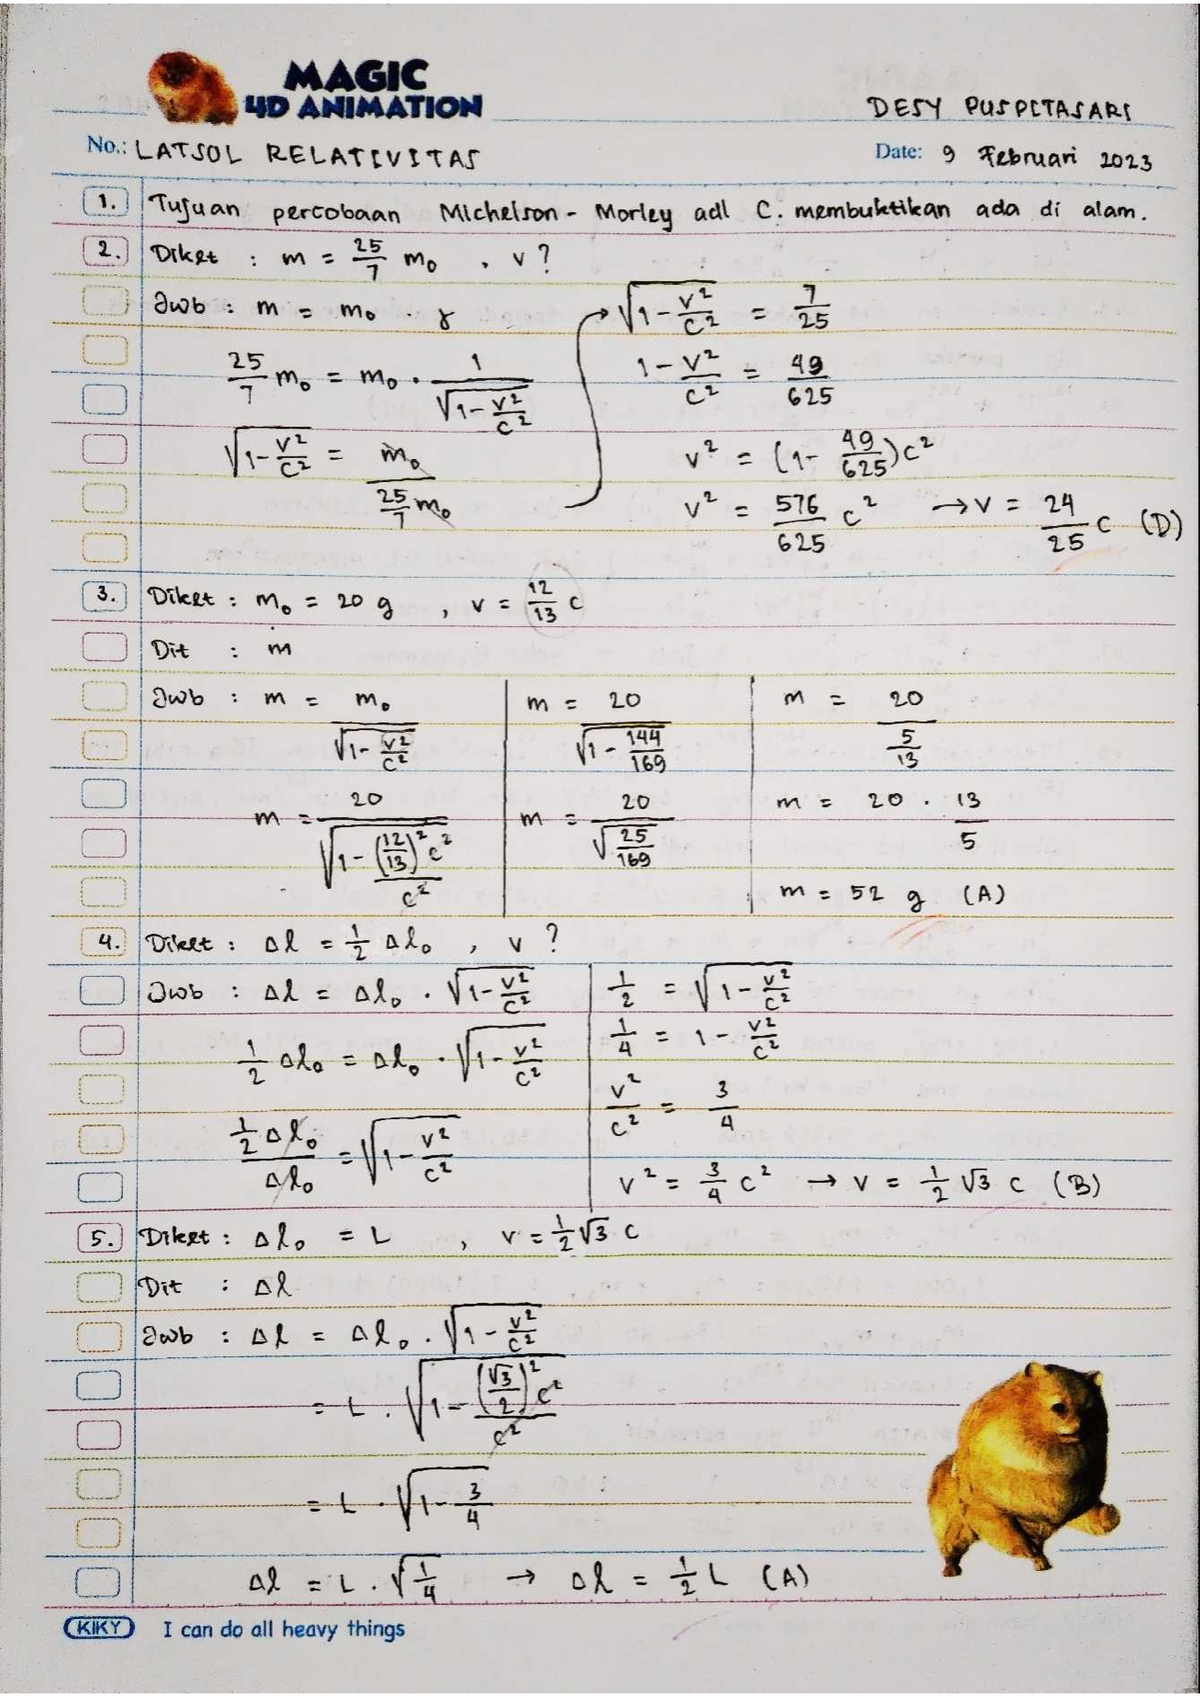 MAGIC
4D ANIMATION
DESY PUSPITASARI
No.: LATSOL RELATIVITAS
Date: 9 Februari 2023
1. Tujuan percobaan Michelson - Morley adl C. membuktikan ada di alam.
2. Diket : m = 25/7 m₀ , v ?
Jwb : m = m₀ . γ
25/7 m₀ = m₀ . 1/√(1-v²/c²)
√(1-v²/c²) = m₀/(25/7 m₀)
√(1-v²/c²) = 7/25
1-v²/c² = 49/625
v² = (1- 49/625)c²
v² = 576/625 c² → v = 24/25 c (D)
3. Diket : m₀ = 20 g , v = 12/13 c
Dit : m
Jwb : m = m₀/√(1-v²/c²)
m = 20/√(1-(12/13)²c²/c²)
m = 20/√(1-144/169)
m = 20/√(25/169)
m = 20/(5/13)
m = 20 . 13/5
m = 52 g (A)
4. Diket : Δl = 1/2 Δl₀ , v ?
Jwb : Δl = Δl₀ . √(1-v²/c²)
1/2 Δl₀ = Δl₀ . √(1-v²/c²)
(1/2 Δl₀)/Δl₀ = √(1-v²/c²)
1/2 = √(1-v²/c²)
1/4 = 1-v²/c²
v²/c² = 3/4
v² = 3/4 c² → v = 1/2 √3 c (B)
5. Diket : Δl₀ = L , v = 1/2 √3 c
Dit : Δl
Jwb : Δl = Δl₀ . √(1-v²/c²)
= L . √(1-(√3/2)²c²/c²)
= L . √(1-3/4)
Δl = L . √(1/4) → Δl = 1/2 L (A)
KIKY I can do all heavy things